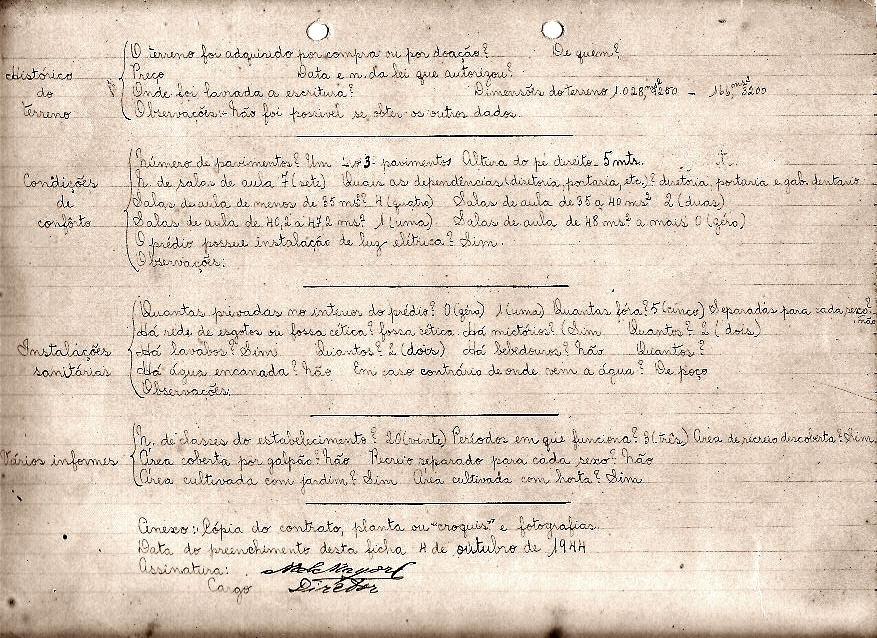 O terreno foi adquirido por compra ou por doação? De quem?
Histórico Preço Data e n. da lei que autorizou?
do Onde foi lavrada a escritura? Dimensões do terreno 1.028,
terreno Observações:- Não foi possivel se obter os outros dados.
Número de pavimentos? Um pavimentos Altura do pé direito - 5 mts.
Condições N. de salas de aula 7 (sete) Quais as dependências (diretoria, portaria, etc.)? diretoria, portaria e gab. dentario
de Salas de aula de menos de 35 ms²? 4 (quatro) Salas de aula de 35 a 40 ms² 2 (duas)
confôrto Salas de aula de 40,2 a 47,2 ms² 1 (uma) Salas de aula de 48 ms² a mais 0 (zéro)
O prédio possue instalação de luz elétrica? Sim.
Observações:
Quantas privadas no interior do prédio? 0 (zéro) 1 (uma) Quantas fóra? 5 (cinco) Separadas para cada sexo? não
Há rede de esgotos ou fossa cética? fossa cética. Há mictórios? (Sim Quantos? 2 (dois)
Instalações Há lavabos? Sim Quantos? 2 (dois) Há bebedouros? Não Quantos?
sanitárias Há água encanada? Não Em caso contrário de onde vem a água? De poço
Observações:
N. de classes do estabelecimento? 20 (vinte) Períodos em que funciona? 3 (três) Area de recreio descoberta? Sim
Vários informes Área coberta por galpão? Não Recreio separado para cada sexo? Não
Área cultivada com jardim? Sim Área cultivada com horta? Sim
Anexo: Cópia do contrato, planta ou "croquis" e fotografias.
Data do preenchimento desta ficha 4 de outubro de 1944
Assinatura:
Cargo Diretor